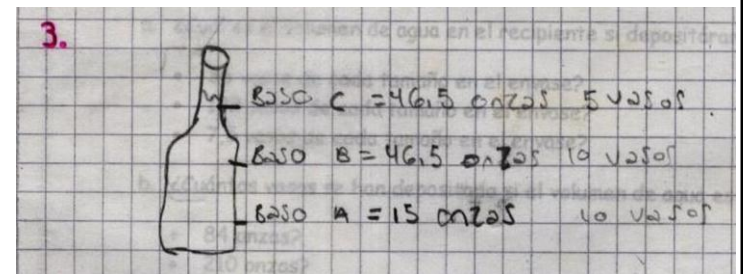 3.
Baso C = 46,5 onzas 5 vasos.
Baso B = 46,5 onzas 10 vasos
Baso A = 15 onzas 10 vasos